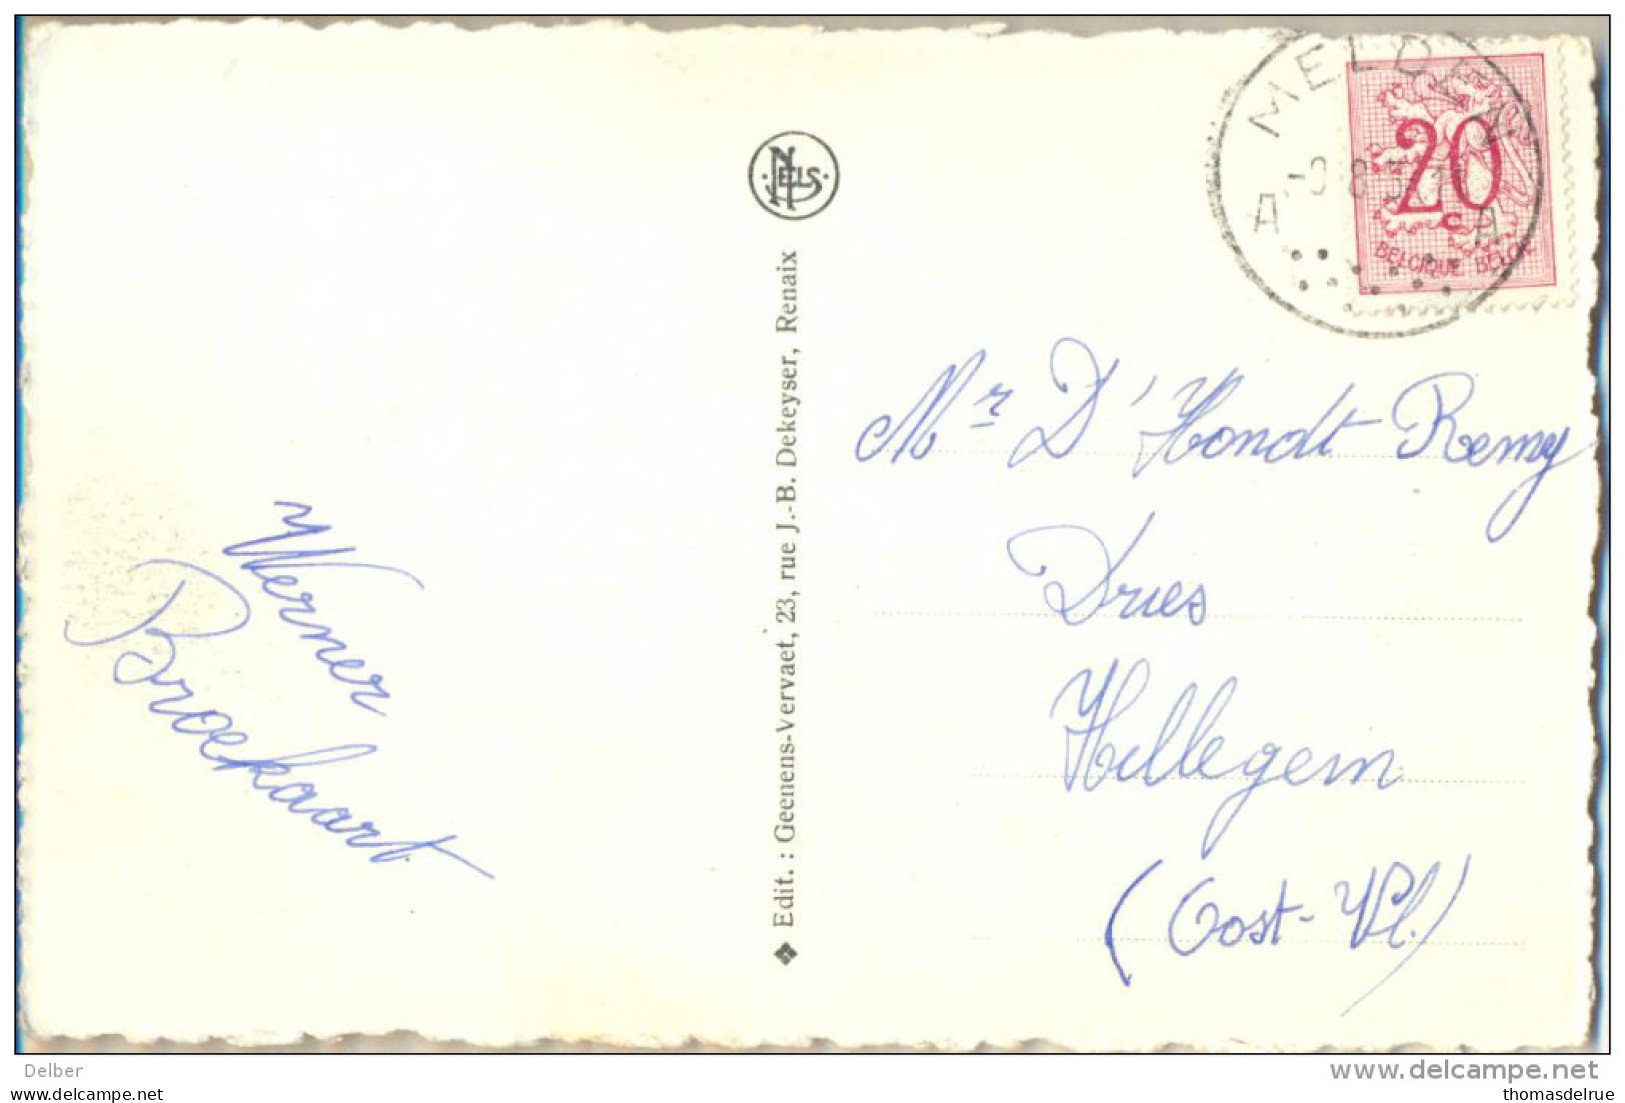 Werner
Broekaart
NELS
❖ Edit. : Geenens-Vervaet, 23, rue J.-B. Dekeyser, Renaix
MELDEN
A A
20
C
BELGIQUE BELGIE
Mr D'Hondt Remy
Dries
Hillegem
(Oost-Vl.)
Delber
www.delcampe.net
picture.com
thomasdelrue